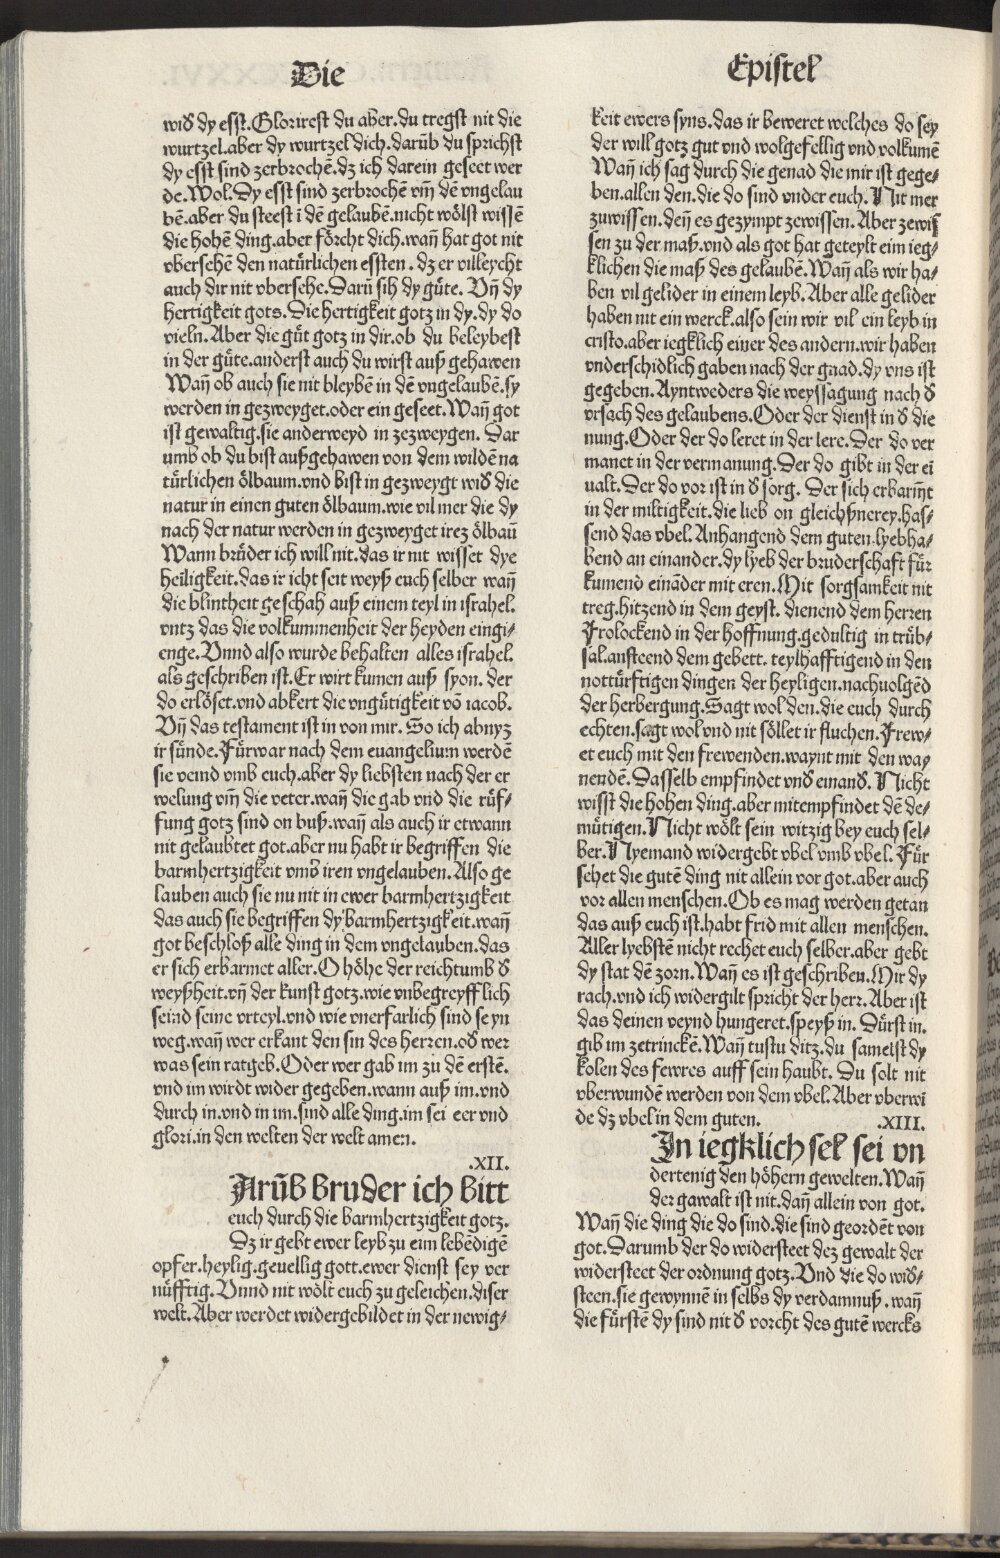 Die
Epistel
wið dy esst.Glorirest du aber.du tregst nit die
wurtzel.aber dy wurtzel dich.darūb du sprichst
dy esst sind zerbrochē.dz ich darein geseet wer
de.Wol.Dy esst sind zerbrochē vm̄ dē vngelau
bē.aber du steest ī dē gelaubē.nicht wȯlst wissē
die hohē ding.aber fȯrcht dich.wan̄ hat got nit
vbersehē den natu̇rlichen essten.dz er villeycht
auch dir nit vbersehe.Darū sih dy gu̇te.Vn̄ dy
hertigkeit gots.Die hertigkeit gotz in dy.dy do
vieln.Aber die gu̇t gotz in dir.ob du beleybest
in der gu̇te.anderst auch du wirst auß gehawen
Wan̄ ob auch sie nit bleybē in dē vngelaubē.sy
werden in gezweyget.oder ein geseet.Wan̄ got
ist gewaltig.sie anderweyd in zezweygen. Dar
umb ob du bist außgehawen von dem wildē na
tu̇rlichen ȯlbaum.vnd bist in gezweygt wið die
natur in einen guten ȯlbaum.wie vil mer die dy
nach der natur werden in gezweyget irez ȯlbaū
Wann bru̇der ich will nit.das ir nit wisset dye
heiligkeit.das ir icht seit weyß euch selber wan̄
die blintheit geschah auß einem teyl in israhel.
vntz das die volkummenheit der heyden eingi⸗
enge.Vnnd also wurde behalten alles israhel.
als geschriben ist.Er wirt kumen auß syon. der
do erlȯset.vnd abkert die vngu̇tigkeit vō iacob.
Vn̄ das testament ist in von mir. So ich abnyz
ir su̇nde.Fu̇rwar nach dem euangelium werdē
sie veind vmb euch.aber dy liebsten nach der er
welung vm̄ die veter.wan̄ die gab vnd die ru̇f⸗
fung gotz sind on buß.wan̄ als auch ir etwann
nit gelaubtet got.aber nu habt ir begriffen die
barmhertzigkeit vmb iren vngelauben.Also ge
lauben auch sie nu nit in ewer barmhertzigkeit
das auch sie begriffen dy barmhertzigkeit.wan̄
got beschloß alle ding in dem vngelauben.das
er sich erbarmet aller.O hȯhe der reichtumb ð
weyßheit.vn̄ der kunst gotz.wie vnbegreyfflich
seind seine vrteyl.vnd wie vnerfarlich sind seyn
weg.wan̄ wer erkant den sin des herren.oð wer
was sein ratgeb.Oder wer gab im zu dē erstē.
vnd im wirdt wider gegeben.wann auß im.vnd
durch in.vnd in im.sind alle ding.im sei eer vnd
glori.in den welten der welt amen.
.XII.
Arūb bruder ich bitt
euch durch die barmhertzigkeit gotz.
Dz ir gebt ewer leyb zu eim lebēdigē
opfer.heylig.geuellig gott.ewer dienst sey ver
nu̇fftig.Vnnd nit wȯlt euch zu geleichen.diser
welt.Aber werdet widergebildet in der newig⸗
keit ewers syns.das ir beweret welches do sey
der will gotz gut vnd wolgefellig vnd volkumē
Wan̄ ich sag durch die genad die mir ist gege⸗
ben.allen den.die do sind vnder euch. Nit mer
zuwissen.den̄ es gezympt zewissen.Aber zewis
sen zu der maß.vnd als got hat geteylt eim ieg⸗
klichen die maß des gelaubē.Wan̄ als wir ha⸗
ben vil gelider in einem leyb.Aber alle gelider
haben nit ein werck.also sein wir vil ein leyb in
cristo.aber iegklich einer des andern.wir haben
vnderschidlich gaben nach der gnad.dy vns ist
gegeben.Ayntweders die weyssagung nach ð
vrsach des gelaubens.Oder der dienst in ð die
nung.Oder der do leret in der lere.Der do ver
manet in der vermanung.Der do gibt in der ei
ualt.Der do vor ist in ð sorg. Der sich erbarm̄t
in der miltigkeit.die lieb on gleichßnerey.has⸗
send das vbel.Anhangend dem guten.lyebha⸗
bend an einander.dy lyeb der bruderschaft fu̇r
kumend eināder mit eren.Mit sorgsamkeit nit
treg.hitzend in dem geyst. dienend dem herren
Frolockend in der hoffnung.gedultig in tru̇b⸗
sal.ansteend dem gebett. teylhafftigend in den
nottu̇rftigen dingen der heyligen.nachuolgēd
der herbergung.Sagt wol den.die euch durch
echten.sagt wol vnd nit sȯllet ir fluchen.Frew⸗
et euch mit den frewenden.waynt mit den way
nendē.Dasselb empfindet vnð einanð. Nicht
wisst die hohen ding.aber mitempfindet dē de⸗
mu̇tigen. Nicht wȯlt sein witzig bey euch sel⸗
ber. Nyemand widergebt vbel vmb vbel. Fu̇r
sehet die gutē ding nit allein vor got.aber auch
vor allen menschen.Ob es mag werden getan
das auß euch ist.habt frid mit allen menschen.
Aller lyebstē nicht rechet euch selber.aber gebt
dy stat dē zorn.Wan̄ es ist geschriben.Mir dy
rach.vnd ich widergilt spricht der herr.Aber ist
das deinen veynd hungeret.speyß in. Du̇rst in.
gib im zetrinckē.Wan̄ tustu ditz.du samelst dy
kolen des fewres auff sein haubt. Du solt nit
vberwundē werden von dem vbel.Aber vberwi
de dz vbel in dem guten.
.XIII.
In iegklich sel sei vn
dertenig den hȯhern gewelten.Wan̄
der gawalt ist nit.dan̄ allein von got.
Wan̄ die ding die do sind.die sind geordēt von
got.Darumb der do widersteet dez gewalt der
widersteet der ordnung gotz.Vnd die do wið⸗
steen.sie gewynnē in selbs dy verdamnuß.wan̄
die fu̇rstē dy sind nit ð vorcht des gutē wercks